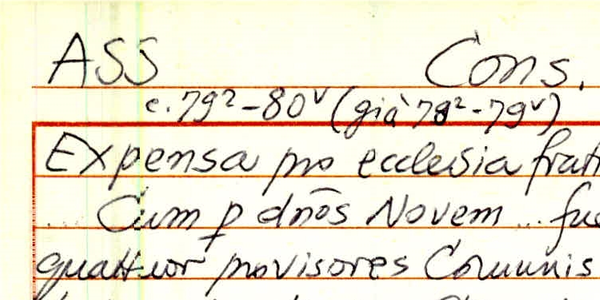 ASS Cons.
c. 79² - 80ᵛ (già 78² - 79ᵛ)
Expensa pro ecclesia frat
... Cum p dn̄os Novem ... fu
quattuor provisores Comunis